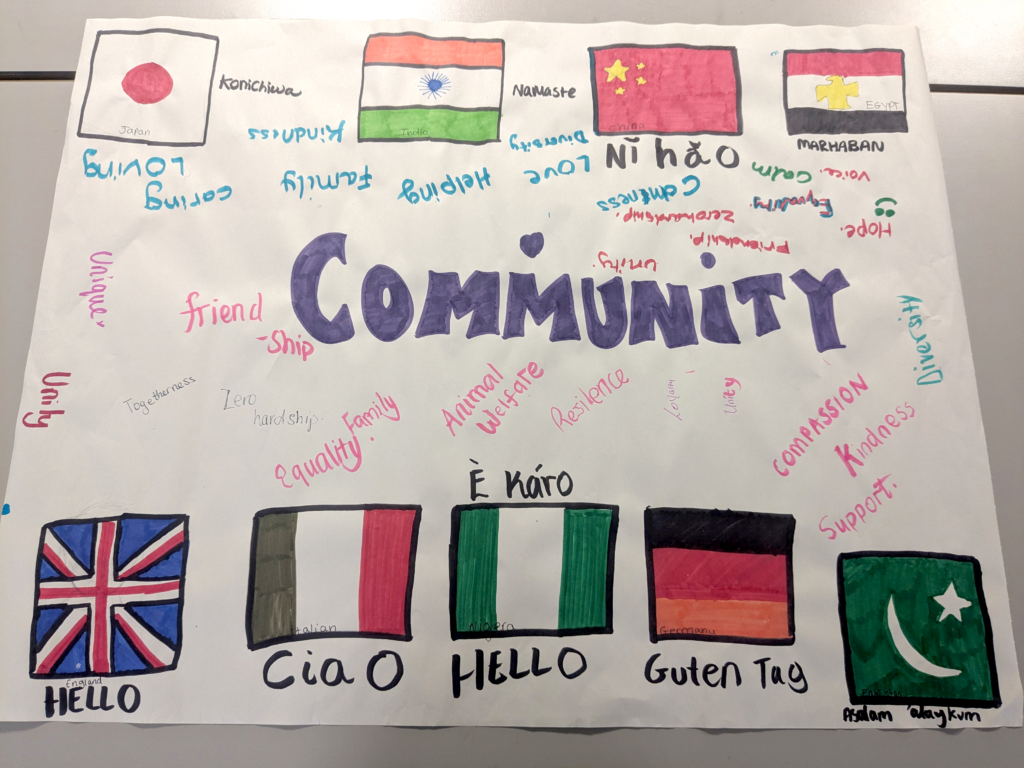 Japan
Konichiwa
India
Namaste
China
Nĭ hăo
EGYPT
MARHABAN
Kindness
Loving
caring
family
Helping
Diversity
Love
Calmness
calm
voice.
Equality.
Hope.
Zero hardship.
friendship.
unity.
COMMUNITY
Unique
friend
-Ship
Diversity
Unity
Togetherness
Zero
hardship.
Family.
Equality
Animal
Welfare
Resilence
Unity
COMPASSION
Kindness
Support.
È Káro
England
HELLO
Italian
Ciao
Nigera
HELLO
Germany
Guten Tag
Asalam 'alaykum